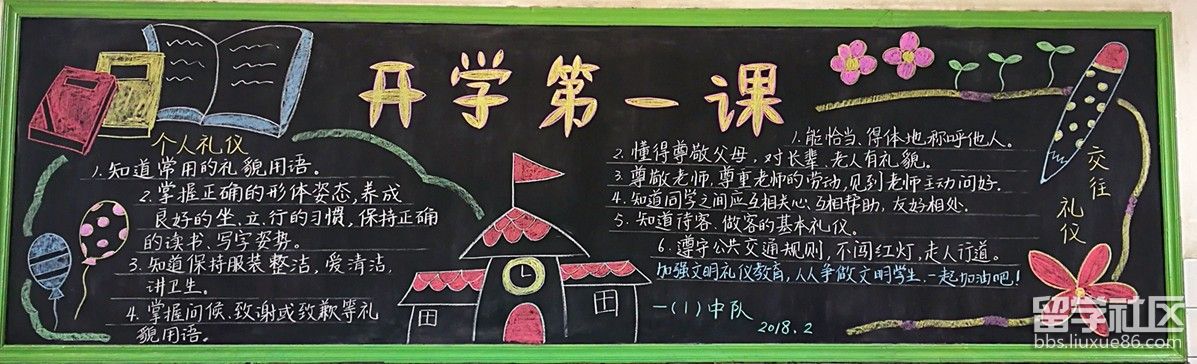 开学第一课
个人礼仪
1.知道常用的礼貌用语。
2.掌握正确的形体姿态,养成
良好的坐、立、行的习惯,保持正确
的读书、写字姿势。
3.知道保持服装整洁,爱清洁,
讲卫生。
4.掌握问候、致谢或致歉等礼
貌用语。
交往
礼仪
1.能恰当、得体地称呼他人。
2.懂得尊敬父母,对长辈、老人有礼貌。
3.尊敬老师,尊重老师的劳动,见到老师主动问好。
4.知道同学之间应互相关心、互相帮助,友好相处。
5.知道待客、做客的基本礼仪。
6.遵守公共交通规则,不闯红灯,走人行道。
加强文明礼仪教育,人人争做文明学生,一起加油吧!
一(1)中队
2018.2
留学社区
bbs.liuxue86.com